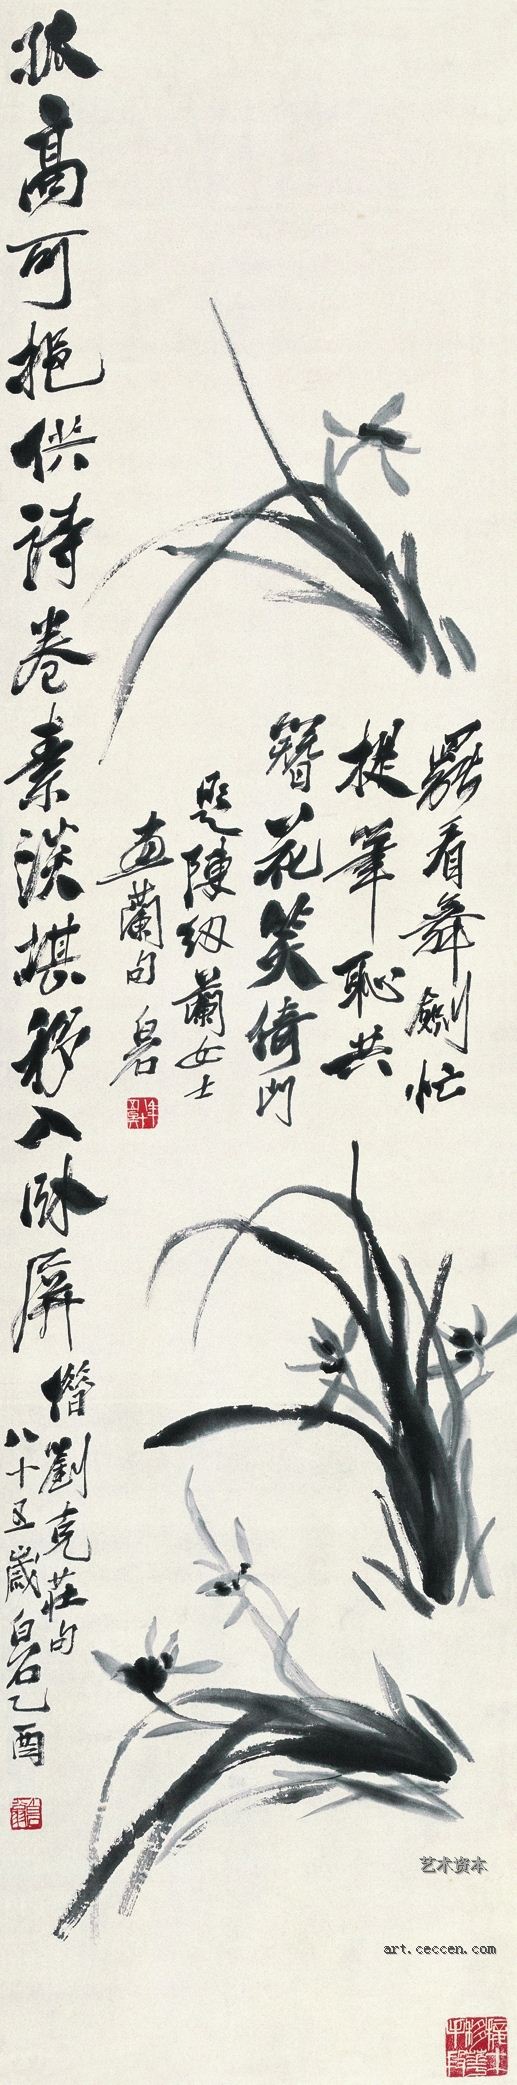 罷看舞劍忙
提筆恥共
簪花笑倚門
題陳紉蘭女士
畫蘭句 白石
孤高可挹供詩卷素淡堪移入臥屏 借劉克莊句
八十五歲白石乙酉
艺术资本
art.ceccen.com